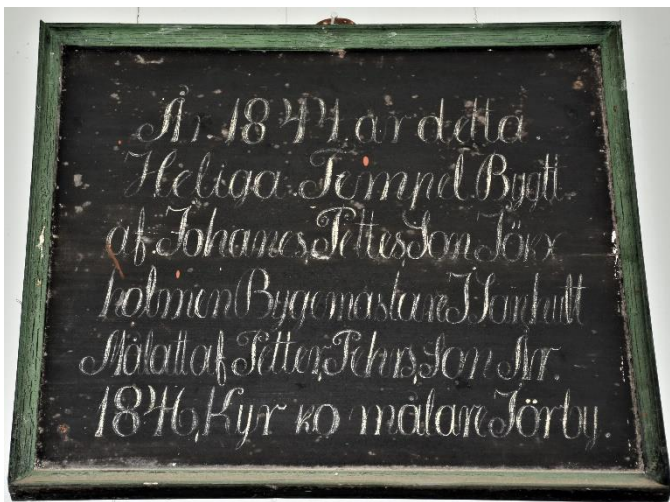 År 1844 är detta
Heliga Tempel Bygtt
af Johanes PettesSon
holmen Bygemästare
Målatt af Petter PehrsSon År.
1846, Kyr ko målare Törby.